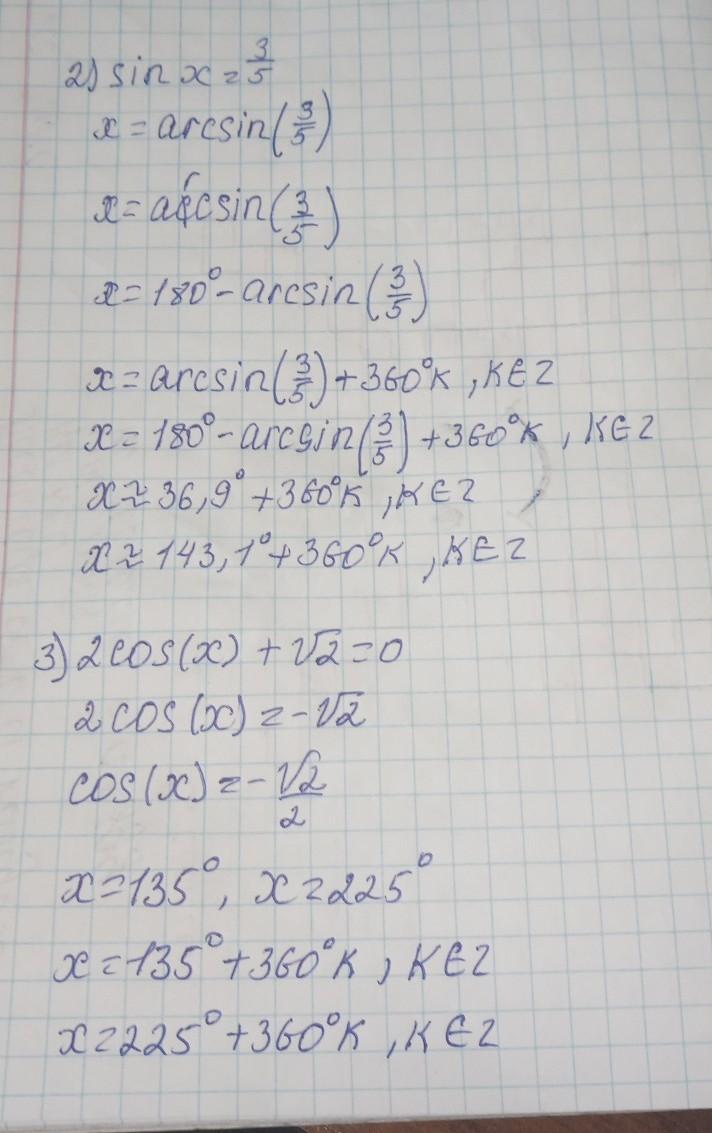 2) sin x = 3/5
x = arcsin(3/5)
x = arcsin(3/5)
x = 180° - arcsin(3/5)
x = arcsin(3/5) + 360°k , k ∈ Z
x = 180° - arcsin(3/5) + 360°k , k ∈ Z
x ≈ 36,9° + 360°k , k ∈ Z
x ≈ 143,1° + 360°k , k ∈ Z
3) 2cos(x) + √2 = 0
2cos(x) = -√2
cos(x) = -√2/2
x = 135°, x = 225°
x = 135° + 360°k , k ∈ Z
x = 225° + 360°k , k ∈ Z